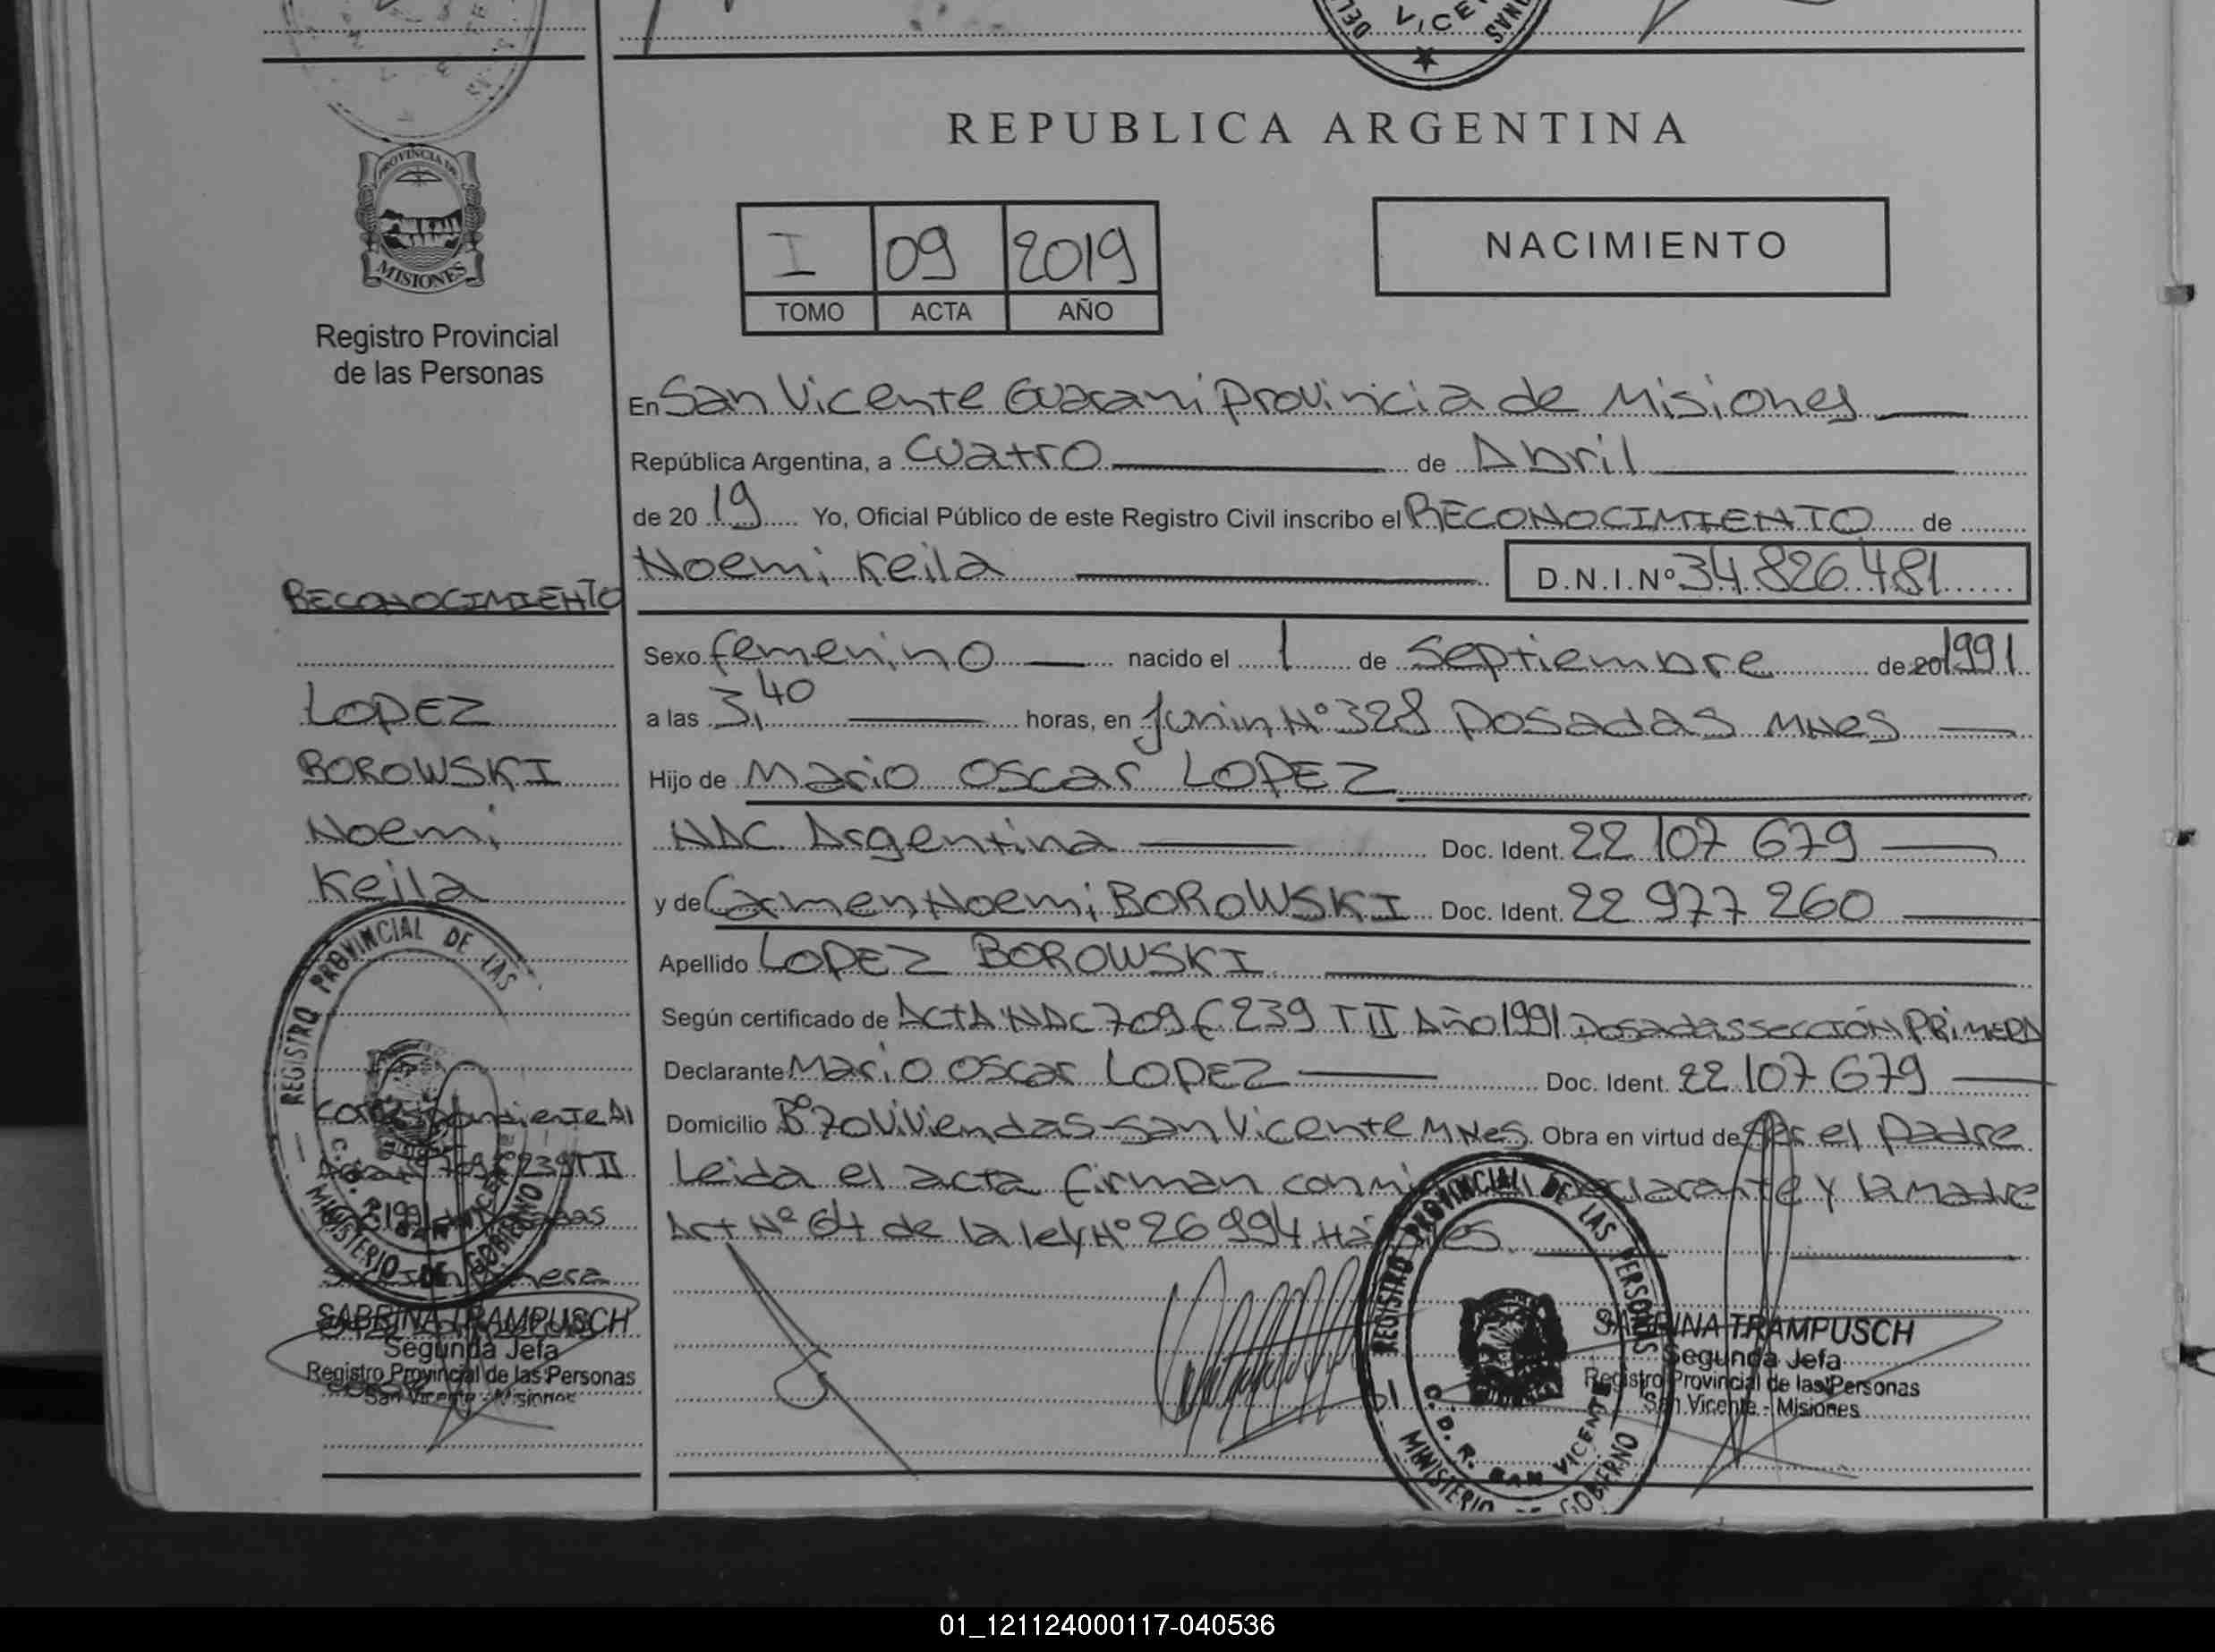 VICE
REPUBLICA ARGENTINA
PROVINCIA DE
MISIONES
Registro Provincial
de las Personas
I 09 2019
TOMO ACTA AÑO
NACIMIENTO
En San Vicente Guarani provincia de Misiones
República Argentina, a Cuatro de Abril
de 20 19 Yo, Oficial Público de este Registro Civil inscribo el RECONOCIMIENTO de
Noemi Keila D.N.I.Nº 34.826.481
Sexo femenino nacido el 1 de Septiembre de 20 1991
a las 3,40 horas, en Junin Nº 328 Posadas MNes
Hijo de Mario Oscar LOPEZ
NAC. Argentina Doc. Ident. 22 107 679
y de Carmen Noemi BOROWSKI Doc. Ident. 22 977 260
Apellido LOPEZ BOROWSKI
Según certificado de ACTA NAC 709 F 239 T II Año 1991 Posadas SECCIÓN PRIMERA
Declarante Mario Oscar LOPEZ Doc. Ident. 22 107 679
Domicilio Bº 70 Viviendas-San Vicente MNes. Obra en virtud de Ser el Padre
Leida el acta firman conmi declarante y la Madre
Art Nº 64 de la ley Nº 26 994
RECONOCIMIENTO
LOPEZ
BOROWSKI
Noemi
Keila
REGISTRO PROVINCIAL DE LAS
MINISTERIO DE GOBIERNO
Correspondiente Al
239 T II
1991
SABRINA TRAMPUSCH
Segunda Jefa
Registro Provincial de las Personas
San Vicente - Misiones
REGISTRO PROVINCIAL DE LAS PERSONAS
C. D. R. SAN VICENTE
MINISTERIO DE GOBIERNO
SABRINA TRAMPUSCH
Segunda Jefa
Registro Provincial de las Personas
San Vicente - Misiones
01_121124000117-040536